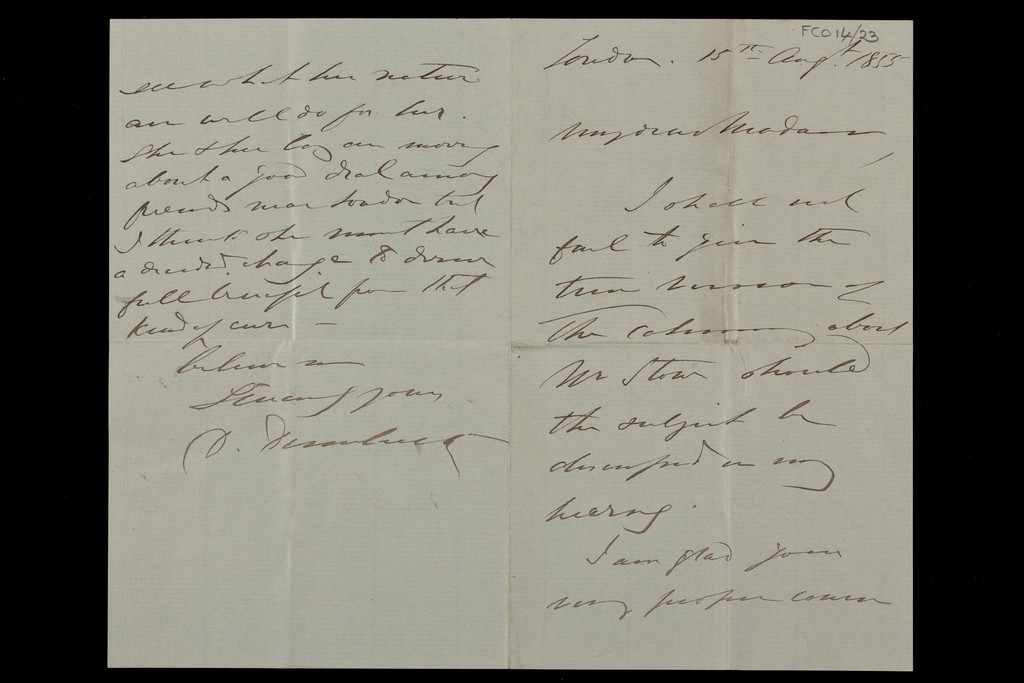 FCO14/23
London. 15th Augt. 1855
My dear Madam
I shall not
fail to give the
true version of
the calumny about
Mr Stow should
the subject be
discussed in my
hearing.
I am glad your
very proper course
see what her native
air will do for her.
She & her boy are moving
about a good deal among
friends near London but
I think she must have
a decided change to derive
full benefit from that
kind of cure –
believe me
yours
D.